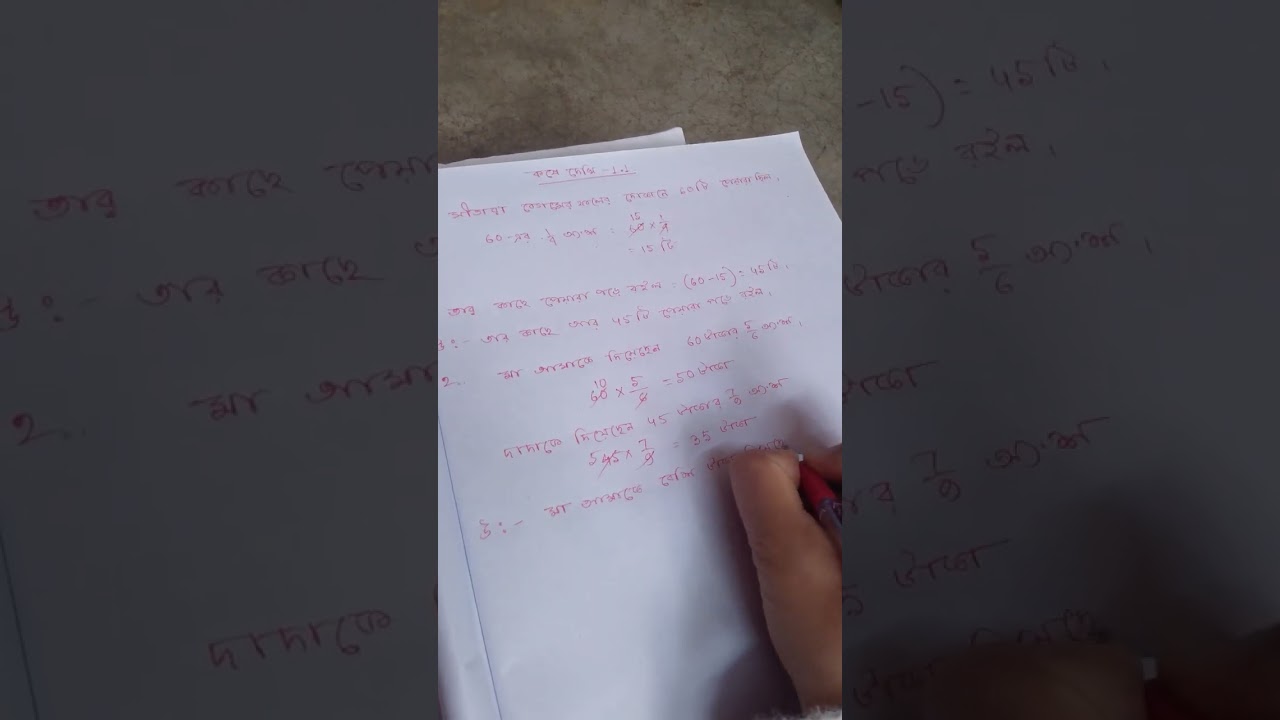 কষে দেখি - 1.1
সীতারা বেগমের ফলের দোকানে 60টি পেয়ারা ছিল।
60-এর 1/4 অংশ = 60 × 1/4
15
= 15 টি
তার কাছে পেয়ারা পড়ে রইল = (60-15) = 45টি।
উ:- তার কাছে আর 45টি পেয়ারা পড়ে রইল।
2. মা আমাকে দিয়েছেন 60 টাকার 5/6 অংশ।
10
60 × 5/6 = 50 টাকা
দাদাকে দিয়েছেন 45 টাকার 7/9 অংশ
5 45 × 7/9 = 35 টাকা
উ:- মা আমাকে বেশি টাকা